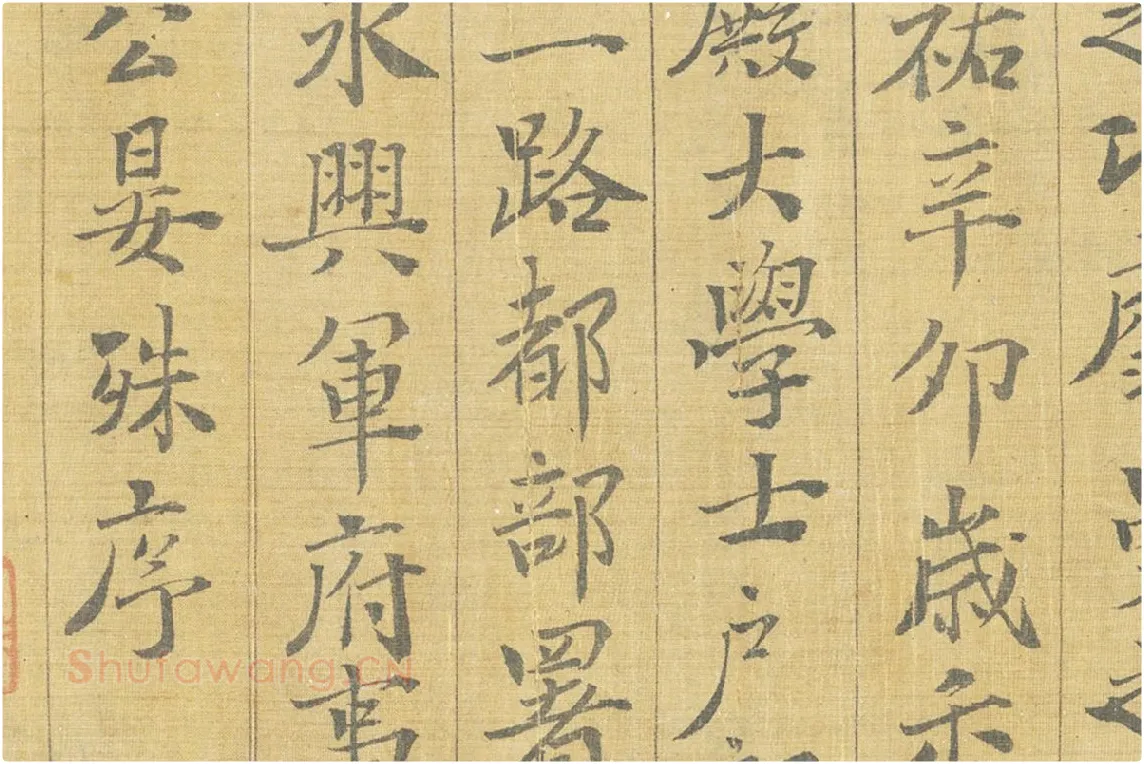 祐辛卯歲
殿大學士戶
一路都部署
永興軍府事
公晏殊序
Shufawang.CN